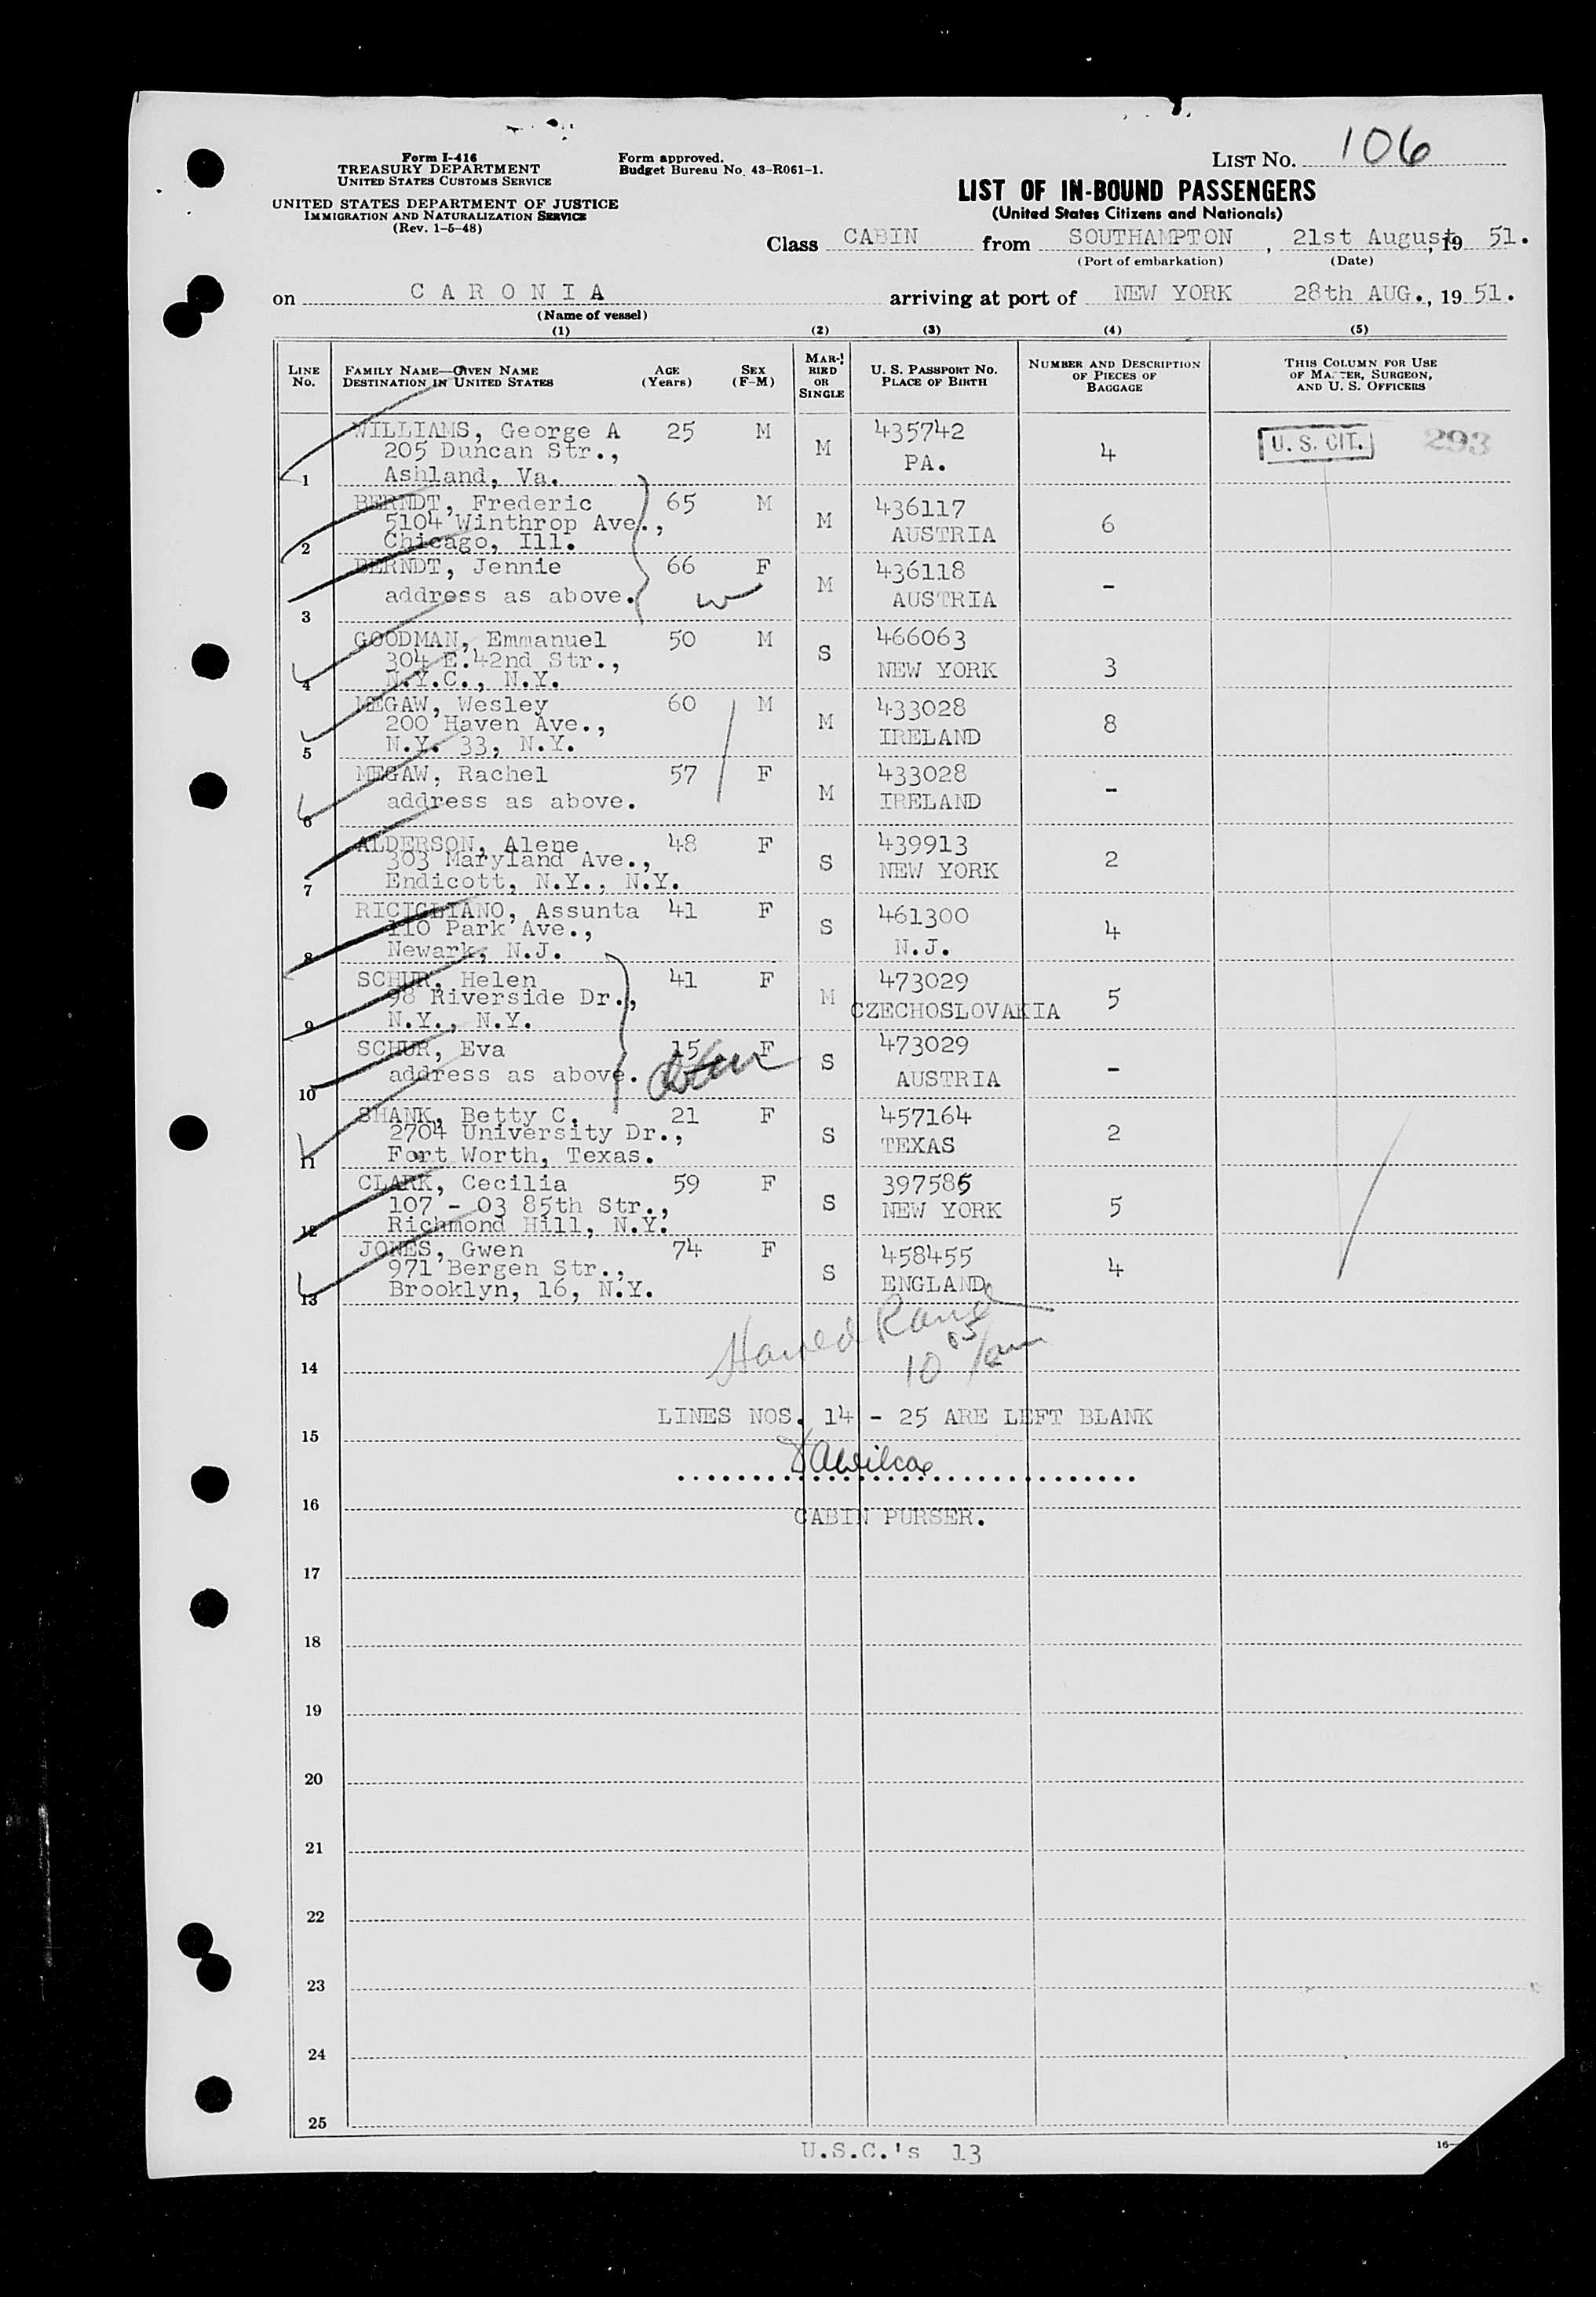 Form I-416
TREASURY DEPARTMENT
UNITED STATES CUSTOMS SERVICE
UNITED STATES DEPARTMENT OF JUSTICE
IMMIGRATION AND NATURALIZATION SERVICE
(Rev. 1-5-48)
Form approved.
Budget Bureau No. 43-R061-1.
LIST No. 106
LIST OF IN-BOUND PASSENGERS
(United States Citizens and Nationals)
Class CABIN from SOUTHAMPTON, 21st August, 19 51.
(Port of embarkation) (Date)
on CARONIA arriving at port of NEW YORK 28th AUG., 19 51.
(Name of vessel)
(1) (2) (3) (4) (5)
LINE No.
FAMILY NAME—GIVEN NAME
DESTINATION IN UNITED STATES
AGE (Years)
SEX (F-M)
MARRIED OR SINGLE
U. S. PASSPORT No.
PLACE OF BIRTH
NUMBER AND DESCRIPTION OF PIECES OF BAGGAGE
THIS COLUMN FOR USE OF MASTER, SURGEON, AND U. S. OFFICERS
WILLIAMS, George A 25 M M 435742 4 U. S. CIT. 293
205 Duncan Str., PA.
1 Ashland, Va.
BERNDT, Frederic 65 M M 436117 6
5104 Winthrop Ave., AUSTRIA
2 Chicago, Ill.
BERNDT, Jennie 66 F M 436118 -
address as above. AUSTRIA
3
GOODMAN, Emmanuel 50 M S 466063 3
304 E.42nd Str., NEW YORK
4 N.Y.C., N.Y.
MEGAW, Wesley 60 M M 433028 8
200 Haven Ave., IRELAND
5 N.Y. 33, N.Y.
MEGAW, Rachel 57 F M 433028 -
address as above. IRELAND
6
ALDERSON, Alene 48 F S 439913 2
303 Maryland Ave., NEW YORK
7 Endicott, N.Y., N.Y.
RICIGLIANO, Assunta 41 F S 461300 4
110 Park Ave., N.J.
8 Newark, N.J.
SCHUR, Helen 41 F M 473029 5
98 Riverside Dr., CZECHOSLOVAKIA
9 N.Y., N.Y.
SCHUR, Eva 15 F S 473029 -
address as above. AUSTRIA
10
SHANK, Betty C. 21 F S 457164 2
2704 University Dr., TEXAS
11 Fort Worth, Texas.
CLARK, Cecilia 59 F S 397585 5
107 - 03 85th Str., NEW YORK
12 Richmond Hill, N.Y.
JONES, Gwen 74 F S 458455 4
971 Bergen Str., ENGLAND
13 Brooklyn, 16, N.Y.
14
LINES NOS. 14 - 25 ARE LEFT BLANK
15
16
CABIN PURSER.
17
18
19
20
21
22
23
24
25
U.S.C.'s 13
16-